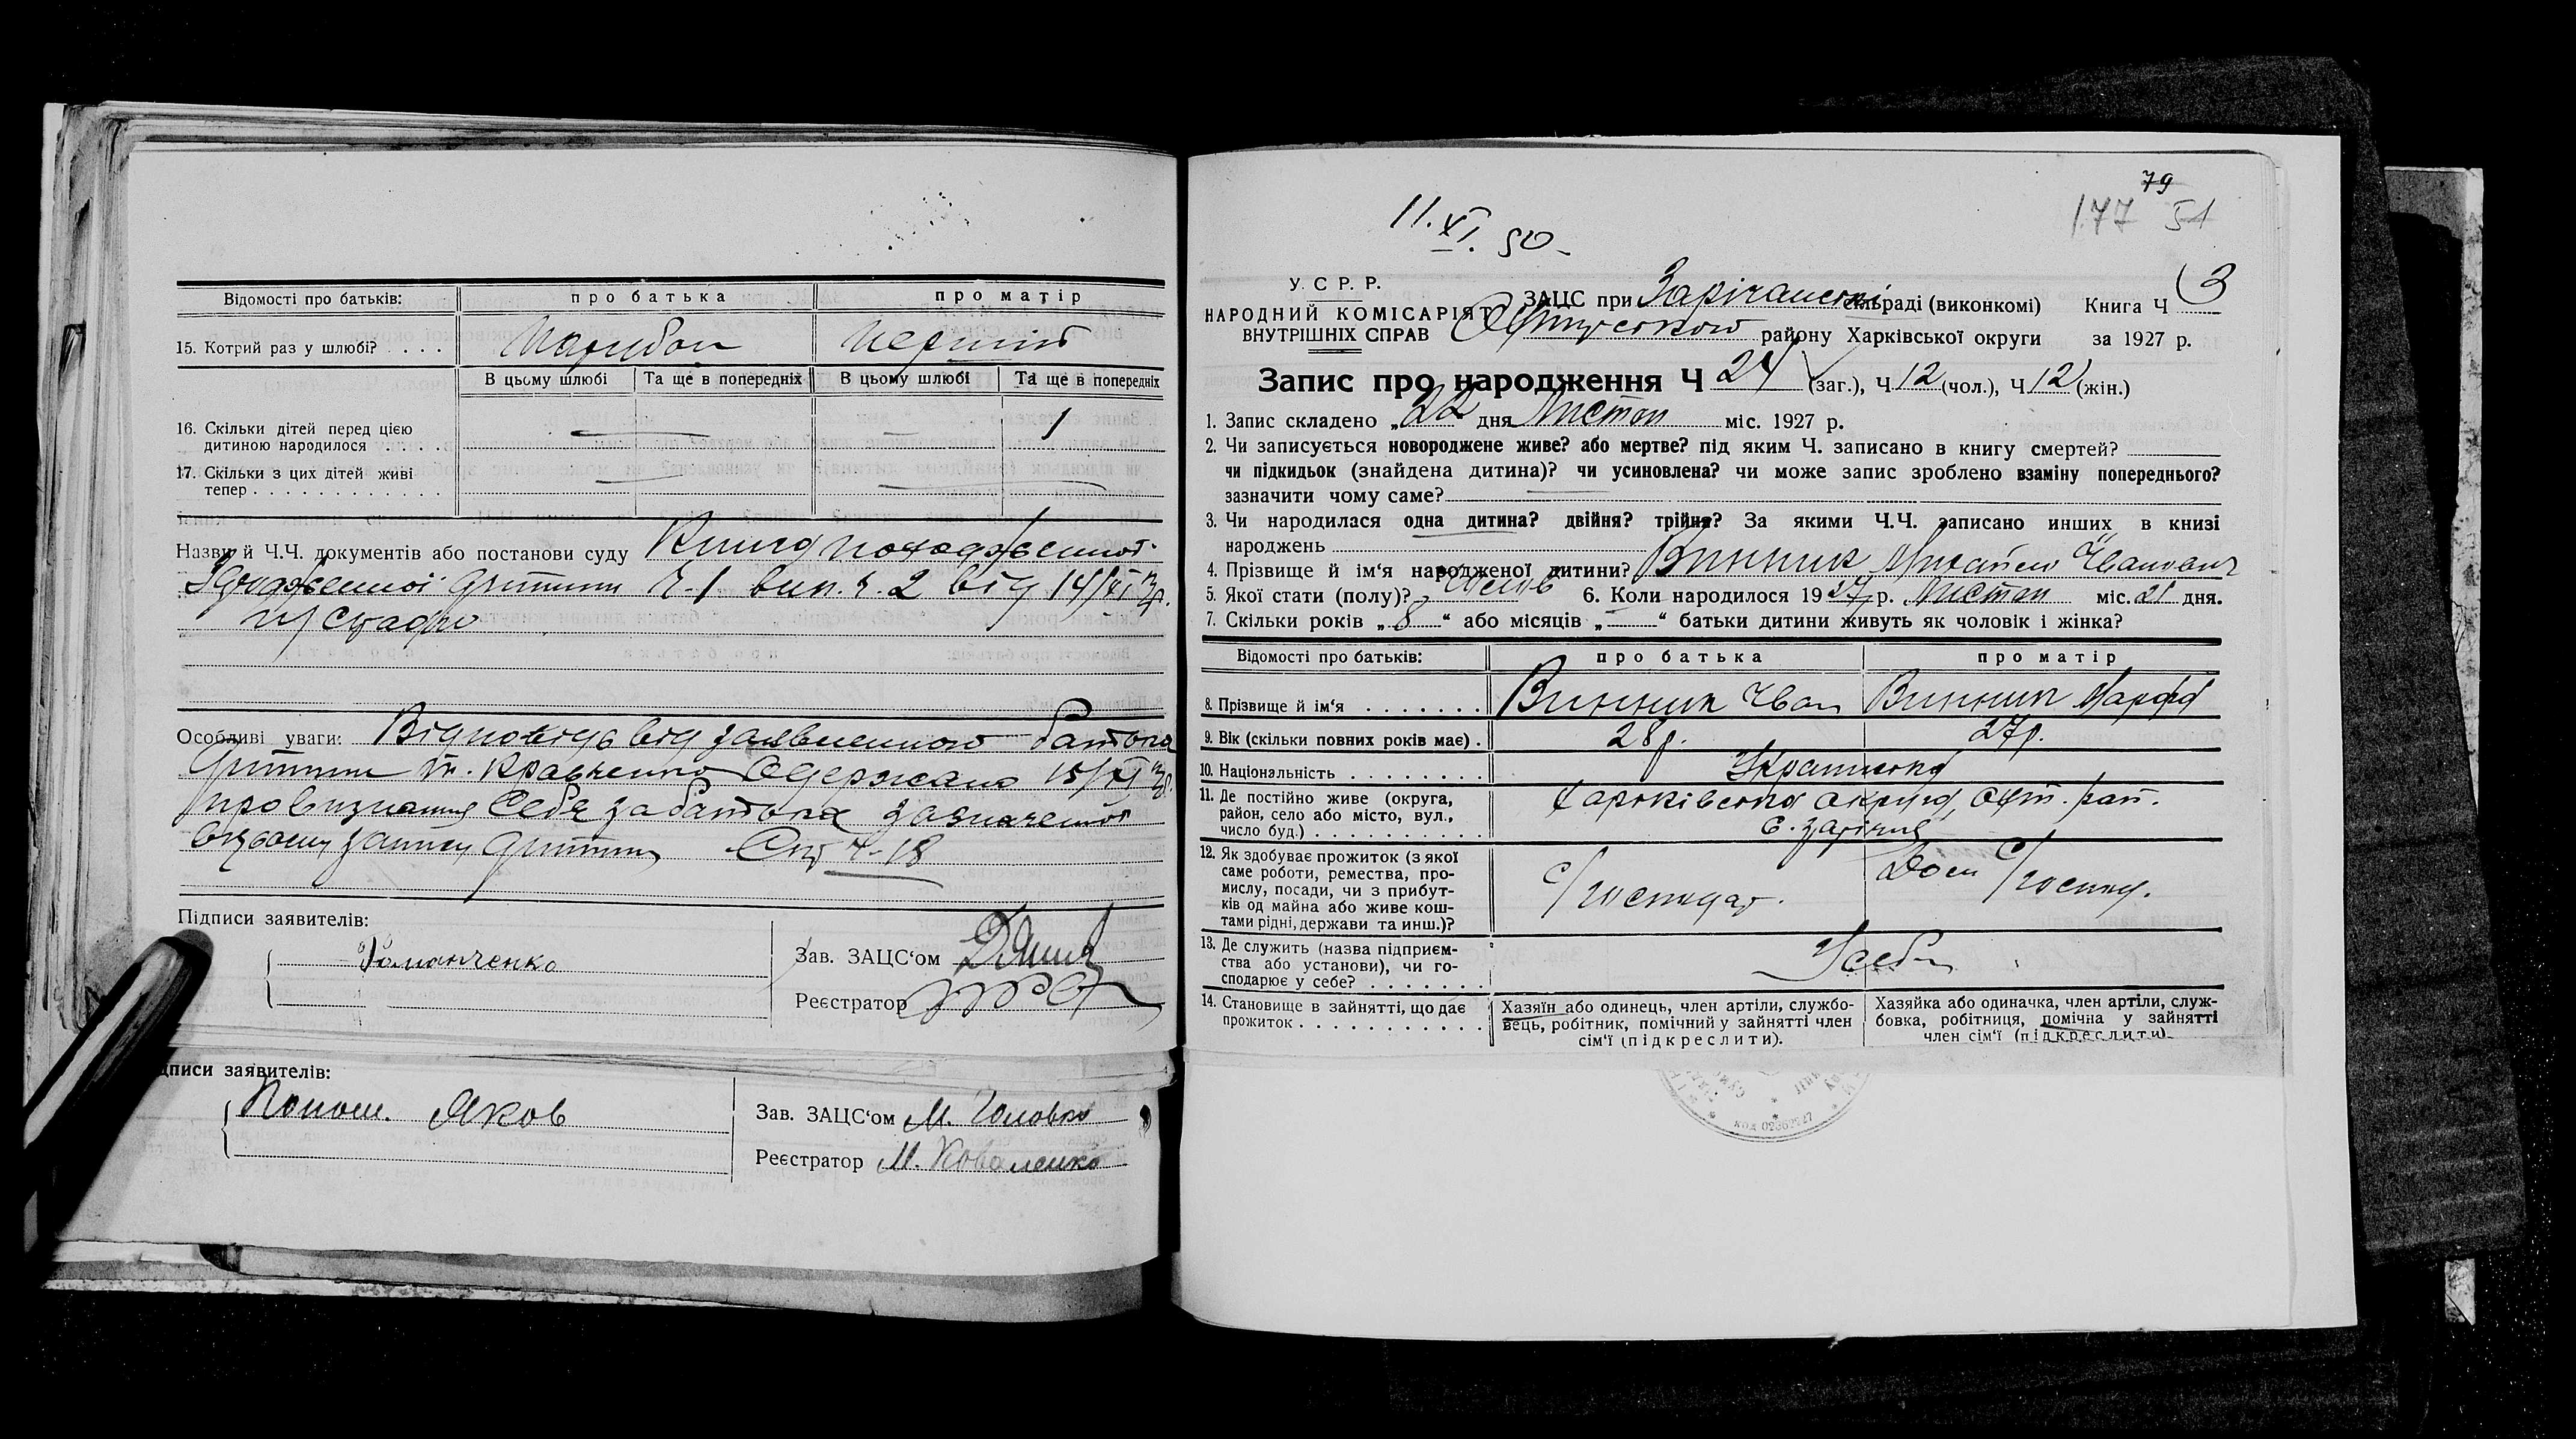 Відомості про батьків: про батька про матір
15. Котрий раз у шлюбі? . . . . Парубок перший
В цьому шлюбі Та ще в попередніх В цьому шлюбі Та ще в попередніх
16. Скільки дітей перед цією
дитиною народилося . . . . — — 1
17. Скільки з цих дітей живі
тепер . . . . . . . . . . . . . — —
Назви й Ч.Ч. документів або постанови суду Книга походження
дитини ч. 1 вип. ч. 2 від 14/XI
Особливі уваги: Відповідь від заявленного батька
дитини т. Кравченко одержано 15/XI
про визнання себе за батька зазначеної
в цьому запису дитини Ст ч-18
Підписи заявителів:
Романченко
Зав. ЗАЦС‘ом
Реєстратор
писи заявителів:
Яков
Зав. ЗАЦС‘ом М. Головко
Реєстратор М. Коваленко
79
177 51
11.XI. 50-
У. С. Р. Р.
НАРОДНИЙ КОМІСАРІЯТ
ВНУТРІШНІХ СПРАВ
ЗАЦС при Зарічанські сільраді (виконкомі) Книга Ч 3
району Харківської округи за 1927 р.
Запис про народження Ч 24 (заг.), Ч 12 (чол.), Ч 12 (жін.)
1. Запис складено „ 22 дня Листоп міс. 1927 р.
2. Чи записується новороджене живе? або мертве? під яким Ч. записано в книгу смертей?
чи підкидьок (знайдена дитина)? чи усиновлена? чи може запис зроблено взаміну попереднього?
зазначити чому саме? —
3. Чи народилася одна дитина? двійня? трійня? За якими Ч.Ч. записано инших, в книзі
народжень
4. Прізвище й ім‘я народженої дитини? Винник Михайло Іванович
5. Якої стати (полу)? чолов 6. Коли народилося 19 27 р. Листоп міс. 21 дня.
7. Скільки років „ 8 “ або місяців „ — “ батьки дитини живуть як чоловік і жінка?
Відомості про батьків: про батька про матір
8. Прізвище й ім‘я . . . . . . . Винник Іван Винник Марфа
9. Вік (скільки повних років має) . 28 р. 27 р.
10. Національність . . . . . . . . Українська
11. Де постійно живе (округа,
район, село або місто, вул.,
число буд.) . . . . . . . . . . . Харківська округа, Охт. рай.
с. Заріччя
12. Як здобуває прожиток (з якої
саме роботи, ремества, про-
мислу, посади, чи з прибут-
ків од майна або живе кош-
тами рідні, держави та инш.)?
с/господар. Дом с/господ.
13. Де служить (назва підприєм-
ства або установи), чи го-
сподарює у себе? . . . . . . . У себе
14. Становище в зайнятті, що дає
прожиток . . . . . . . . . . . .
Хазяїн або одинець, член артілі, службо-
вець, робітник, помічний у зайнятті член
сім‘ї (підкреслити).
Хазяйка або одиначка, член артіли, служ-
бовка, робітниця, помічна у зайнятті
член сім‘ї (підкреслити).